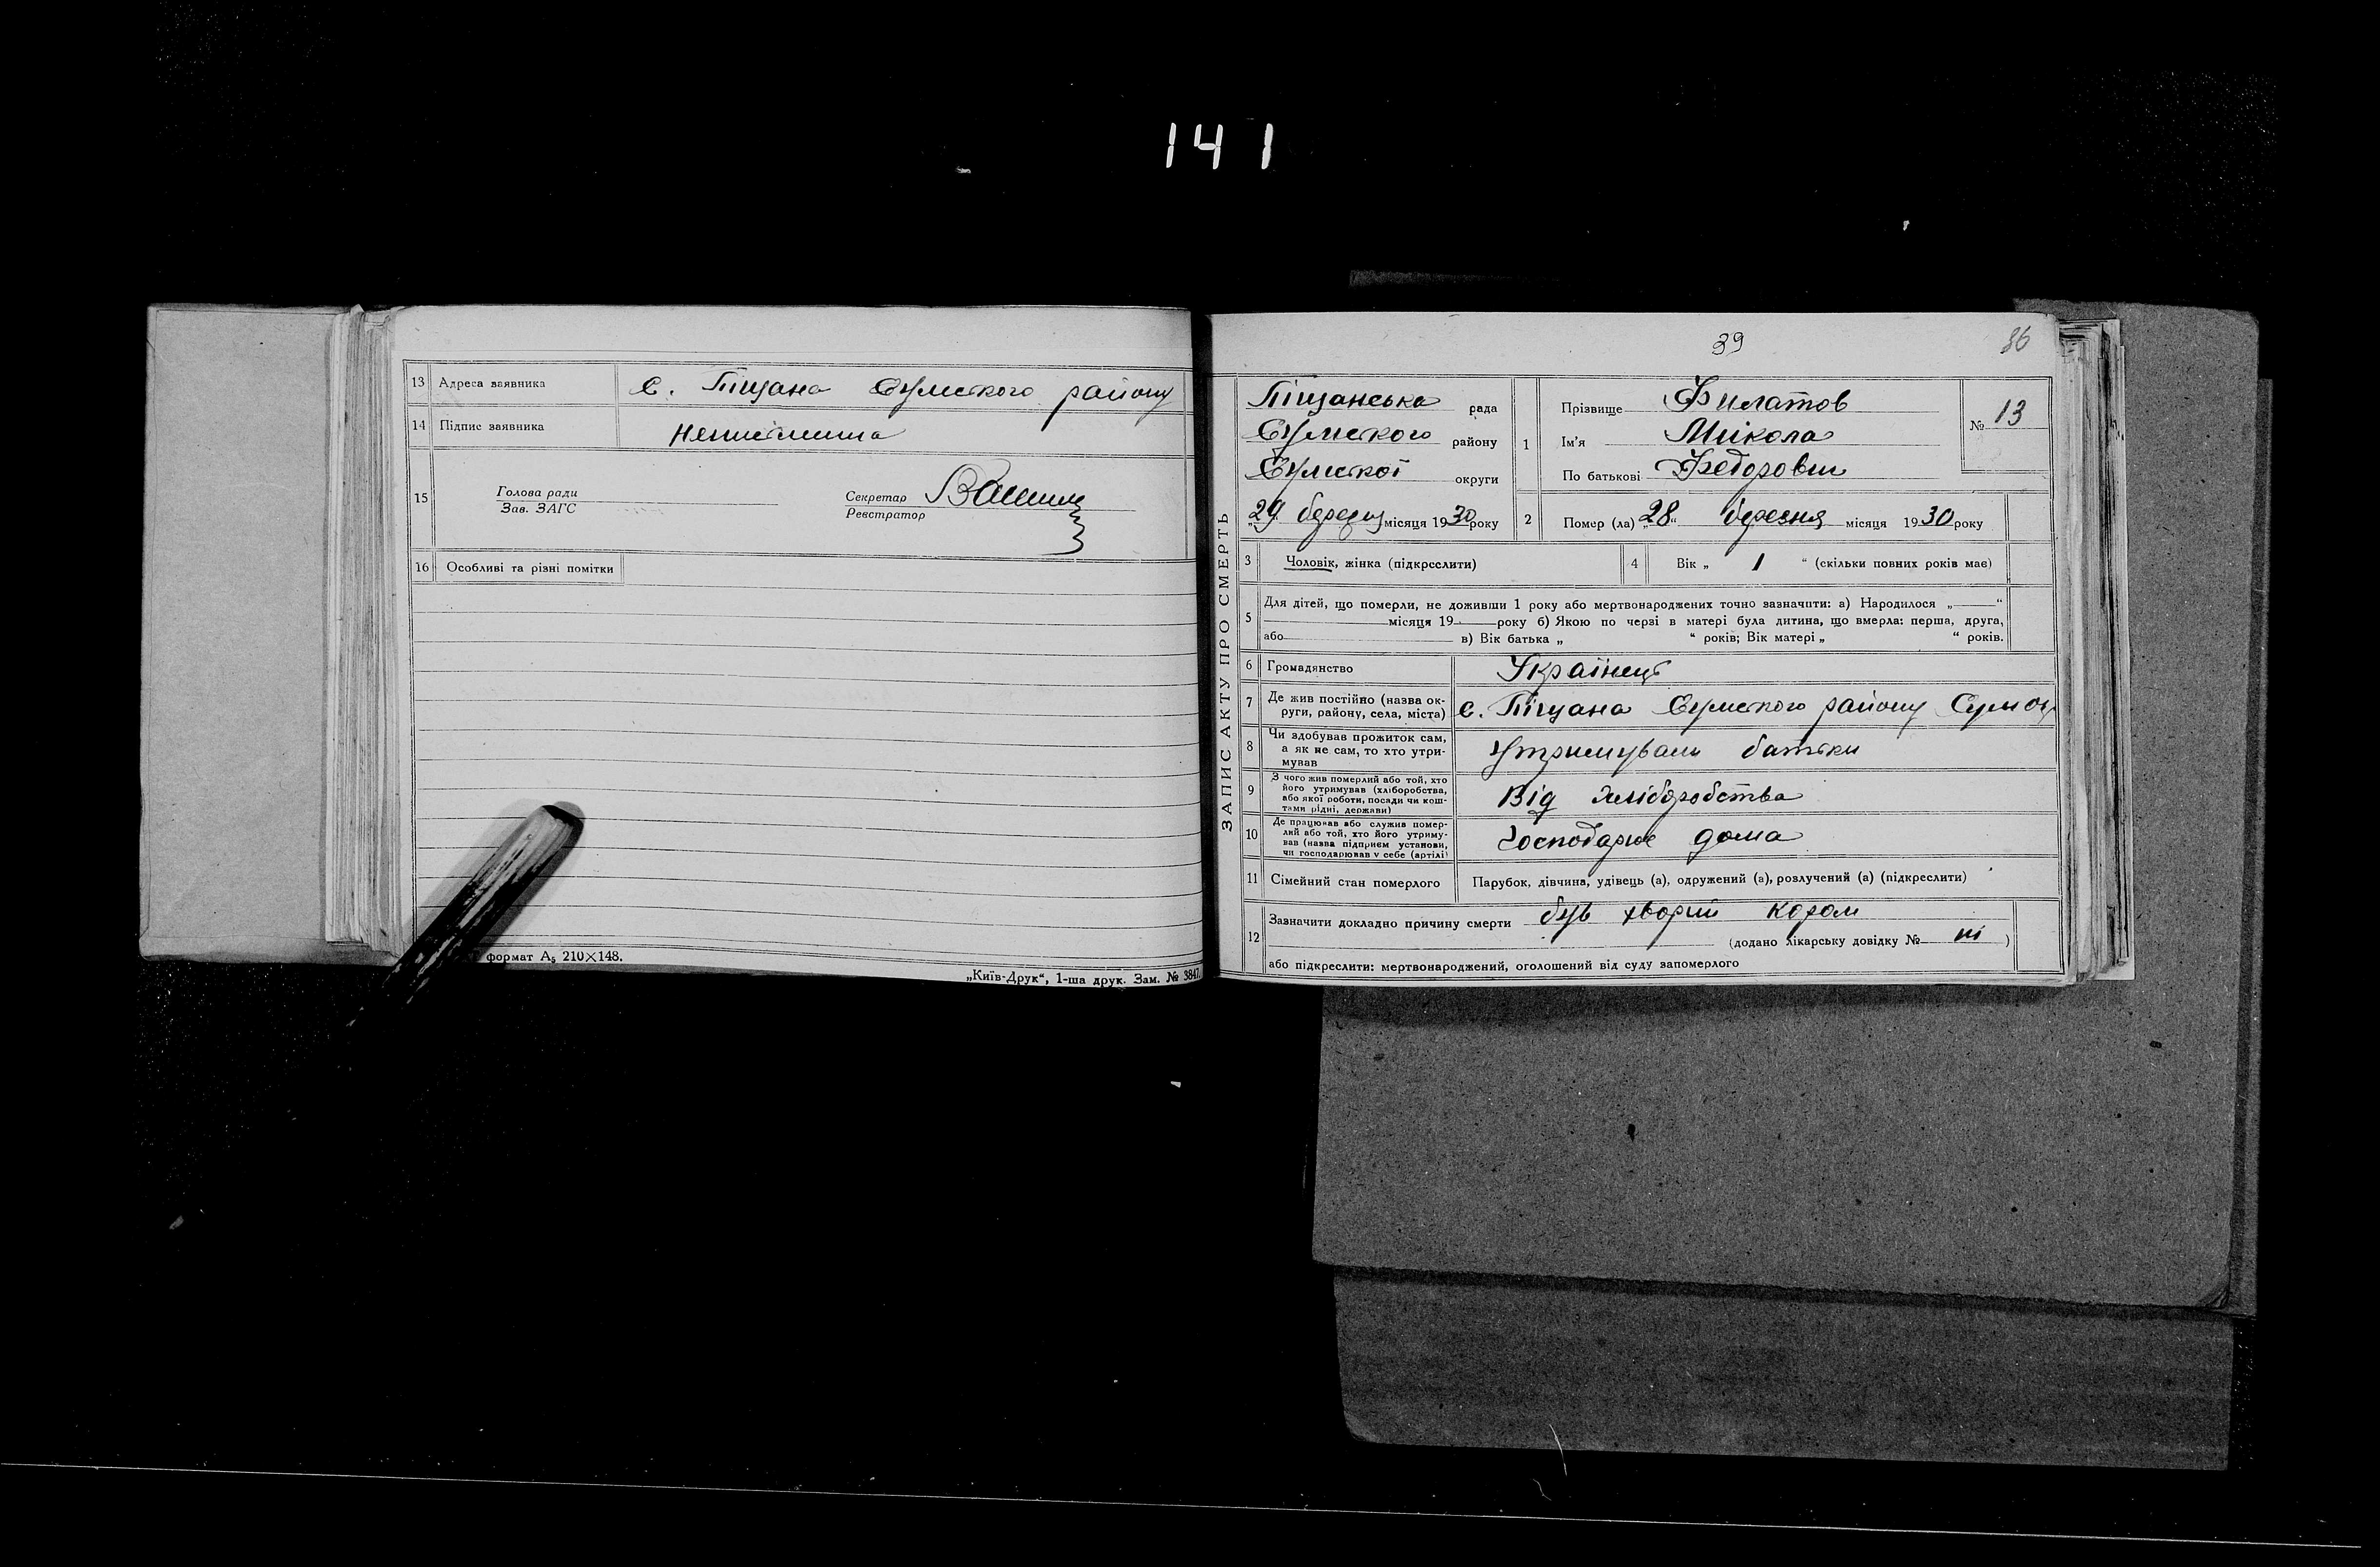 141
13 Адреса заявника с. Піщана Сумского району
14 Підпис заявника неписьмина
15 Голова ради
Зав. ЗАГС
Секретар
Реєстратор
16 Особливі та різні помітки
формат А5 210×148.
„Київ-Друк“, 1-ша друк. Зам. № 3847.
39
86
ЗАПИС АКТУ ПРО СМЕРТЬ
Піщанська рада
Сумского району
Сумскої округи
„29 березня місяця 1930 року
1 Прізвище Филатов
Ім'я Микола
По батькові Федорович
№ 13
2 Помер (ла) „28“ березня місяця 1930 року
3 Чоловік, жінка (підкреслити)
4 Вік „ 1 “ (скільки повних років має)
5 Для дітей, що померли, не доживши 1 року або мертвонароджених точно зазначити: а) Народилося „ “
місяця 19 року б) Якою по черзі в матері була дитина, що вмерла: перша, друга,
або в) Вік батька „ “ років; Вік матері „ “ років.
6 Громадянство Українець
7 Де жив постійно (назва ок-
руги, району, села, міста) с. Піщана Сумского району
8 Чи здобував прожиток сам,
а як не сам, то хто утри-
мував Утримували батьки
9 З чого жив померлий або той, хто
його утримував (хліборобства,
або якої роботи, посади чи кош-
тами рідні, держави) Від хліборобства
10 Де працював або служив помер-
лий або той, хто його утриму-
вав (назва підприєм установи,
чи господарював у себе (артілі) господарює дома
11 Сімейний стан померлого Парубок, дівчина, удівець (а), одружений (а), розлучений (а) (підкреслити)
12 Зазначити докладно причину смерти був хворий кором
(додано лікарську довідку № ні )
або підкреслити: мертвонароджений, оголошений від суду запомерлого